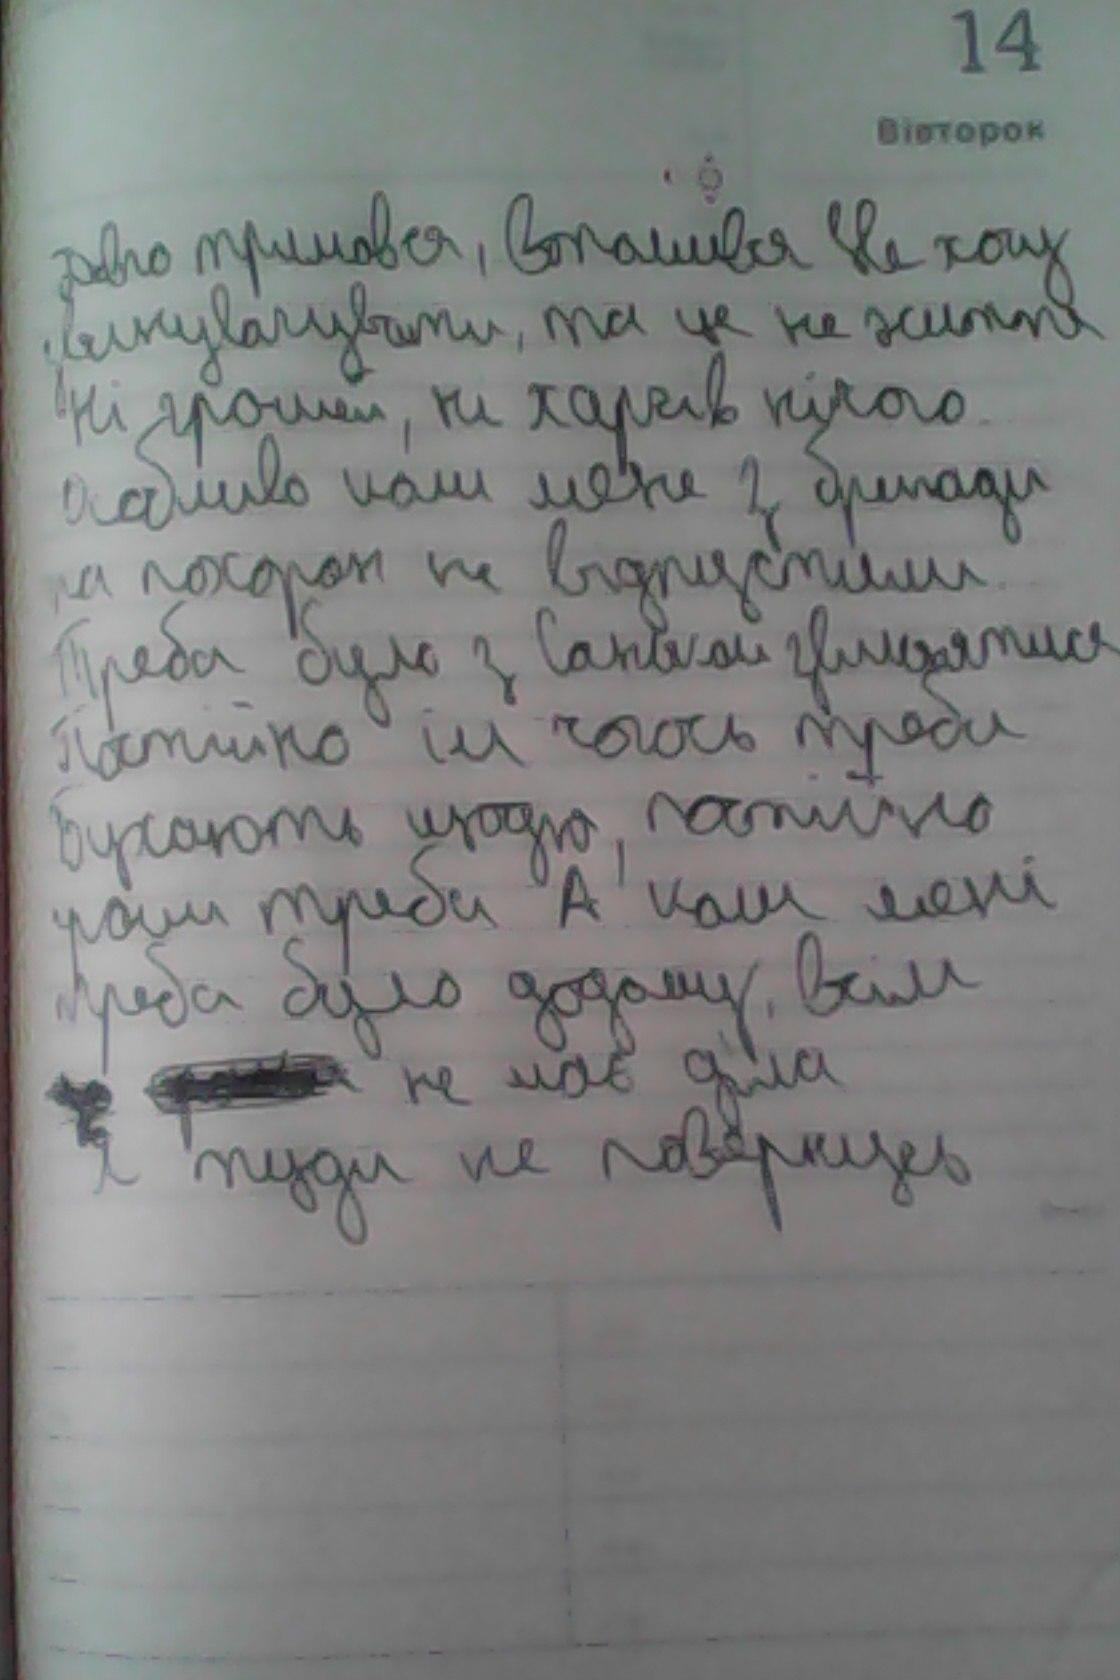 14
Вівторок
тримався, втомився Не хочу
звинувачувати, та це не життя
Ні грошей, ні харчів нічого.
Особливо коли мене з бригади
на похорон не відпустили.
Треба було з Саньком звільнятися
Постійно їм чогось треба
Бухають щодня, постійно
гроші треба А коли мені
треба було додому, всім
не має діла
Я туди не повернусь